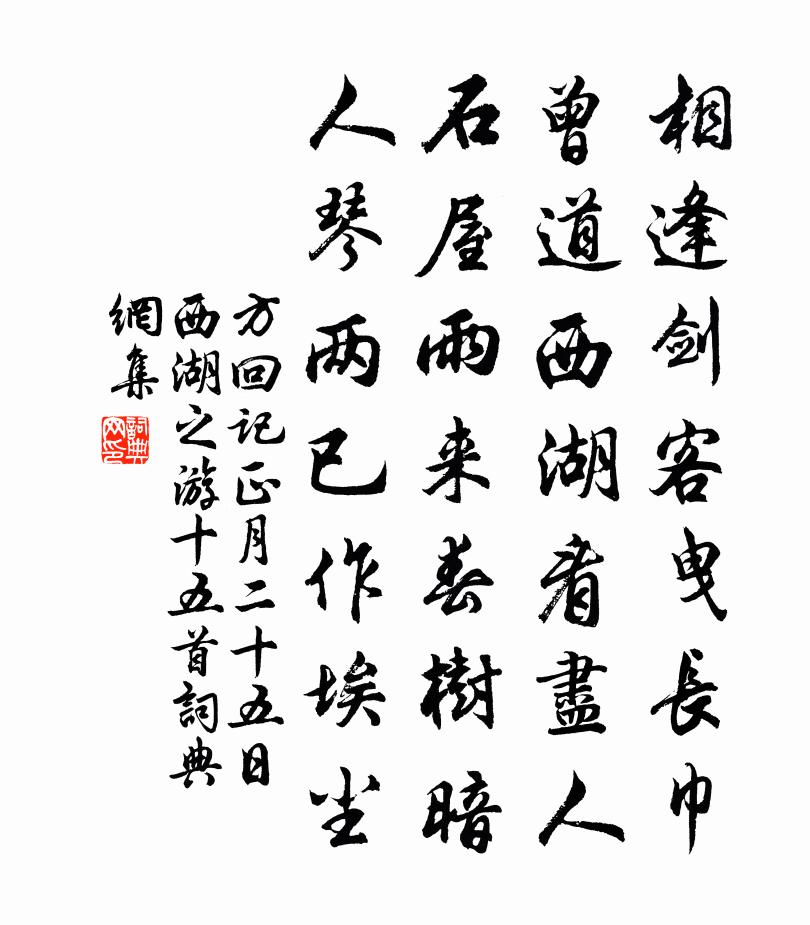 相逢剑客曳長巾
曾道西湖看盡人
石屋雨来春樹暗
人琴两已作埃尘
方回记正月二十五日
西湖之游十五首詞典
網集
詞典
网印